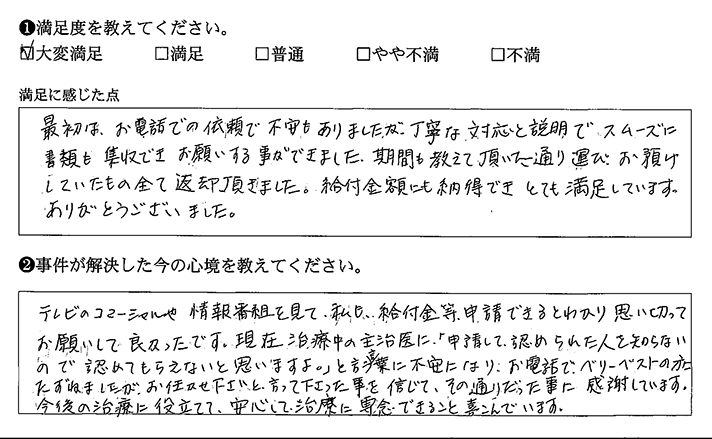 ❶満足度を教えてください。
☑大変満足 □満足 □普通 □やや不満 □不満
満足に感じた点
最初は、お電話での依頼で不安もありましたが、丁寧な対応と説明でスムーズに
書類も集収でき お願いする事ができました。期間も教えて頂いた通り運び、お預け
していたもの全て返却頂きました。給付金額にも納得でき とても満足しています。
ありがとうございました。
❷事件が解決した今の心境を教えてください。
テレビのコマーシャルや 情報番組を見て、私も、給付金等、申請できるとわかり 思い切って
お願いして良かったです。現在治療中の主治医に、「申請して、認められた人を知らない
ので 認めてもらえないと思いますよ。」と言葉に不安になり、お電話で、ベリーベストの方に
たずねましたが、お任せ下さいと、言って下さった事を信じて、その通りだった事に 感謝しています。
今後の治療に役立てて、安心して治療に専念できること 喜こんでいます。